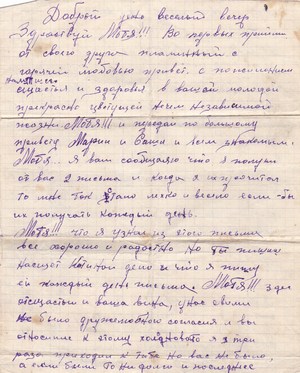 Добрый день веселый вечер
Здравствуй Мотя!!! Во первых прими
от своего друга пламенный с
горячей любовью привет. с пожеланием
счастья и здоровья в вашей молодой
прекрасно цветущей жизни
жизни. Мотя!!! и передай по большому
привету Марии и Саши и всем знакомым.
Мотя... Я вам сообщаю что я получил
от вас 2 письма и когда я прочитал
то мне так стало легко и весело если бы
их получать каждый день.
Мотя!!! что я узнал из этого письма
все хорошо и радостно но ты пишеш
насщот дело и что я пишу
ей каждый день письма. Мотя!!!
и ваша вина, у нас с вами
не было дружелюбного согласия и вы
относились к этому я три
раза приходил к тебе но вас не было,
а если были то не долго и последнее